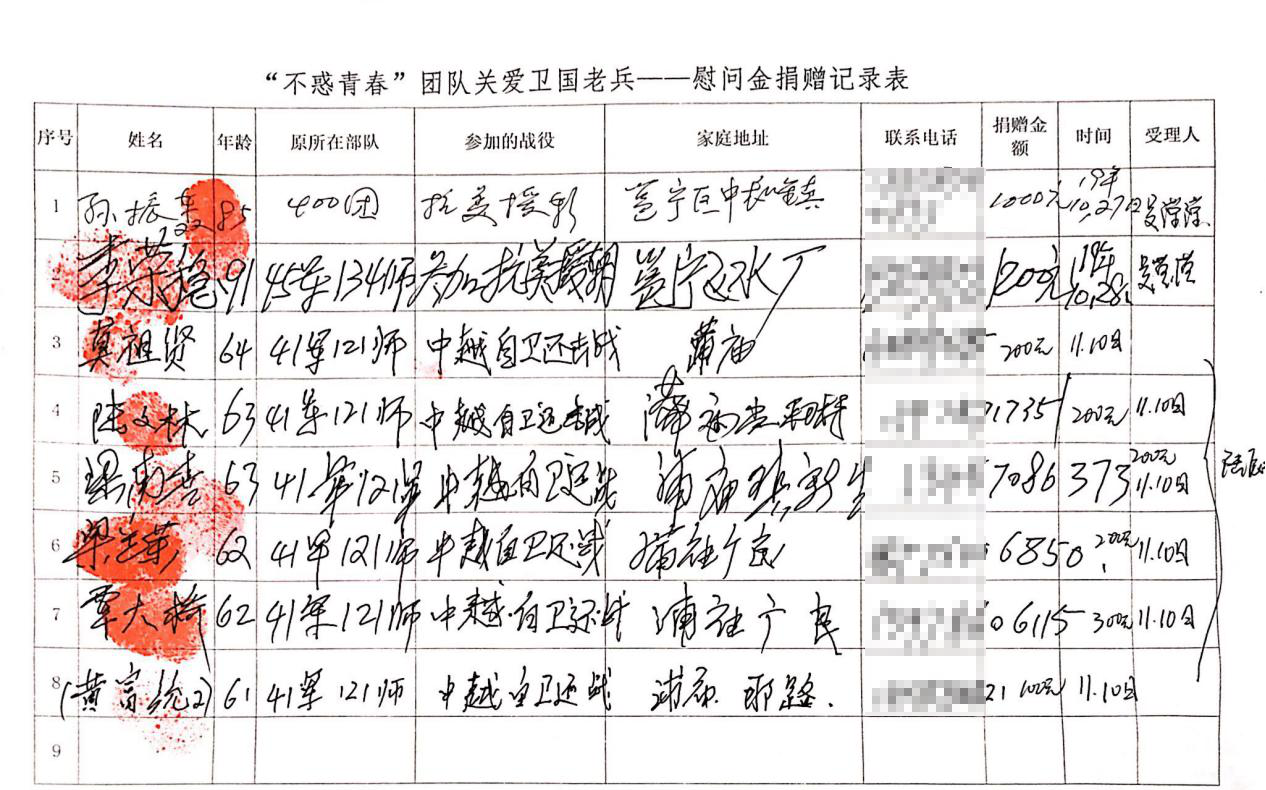 “不惑青春”团队关爱卫国老兵——慰问金捐赠记录表
序号 姓名 年龄 原所在部队 参加的战役 家庭地址 联系电话 捐赠金额 时间 受理人
1 孙振 85 400团 抗美援朝 邕宁区中和镇 1000元 19年10.27日
李荣 91 45军134师 参加抗美援朝 邕宁区水厂 1200元 19年10.28
3 莫祖贤 64 41军121师 中越自卫还击战 蒲庙 200元 11.10日
4 陆文林 63 41军121师 中越自卫还击战 蒲庙 1735 200元 11.10日
5 梁南喜 63 41军121军 中越自卫还战 浦庙镇新生 7086 373 200元 11.10日
6 梁兰英 62 41军121师 中越自卫还战 蒲庙广良 6850 200元 11.10日
7 覃大 62 41军121师 中越自卫还战 浦庙广良 06115 300元 11.10日
8 (黄富 61 41军121师 中越自卫还战 浦庙 路. 21 100元 11.10日
9